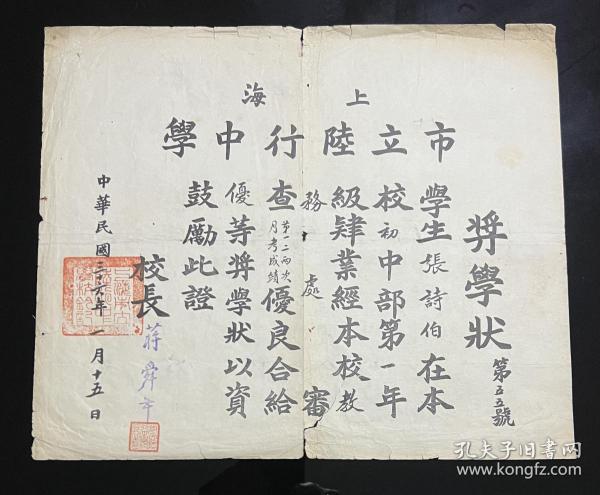 上海
市立陸行中學
奬學狀
第五五號
學生張詩伯在本
校初中部第一年
級肄業經本校教
務處審
查第一二兩次月考成績優良合給
優等奬學狀以資
鼓勵此證
校長
蔣舜年
中華民國三十六年一月十五日
孔夫子旧书网
www.kongfz.com